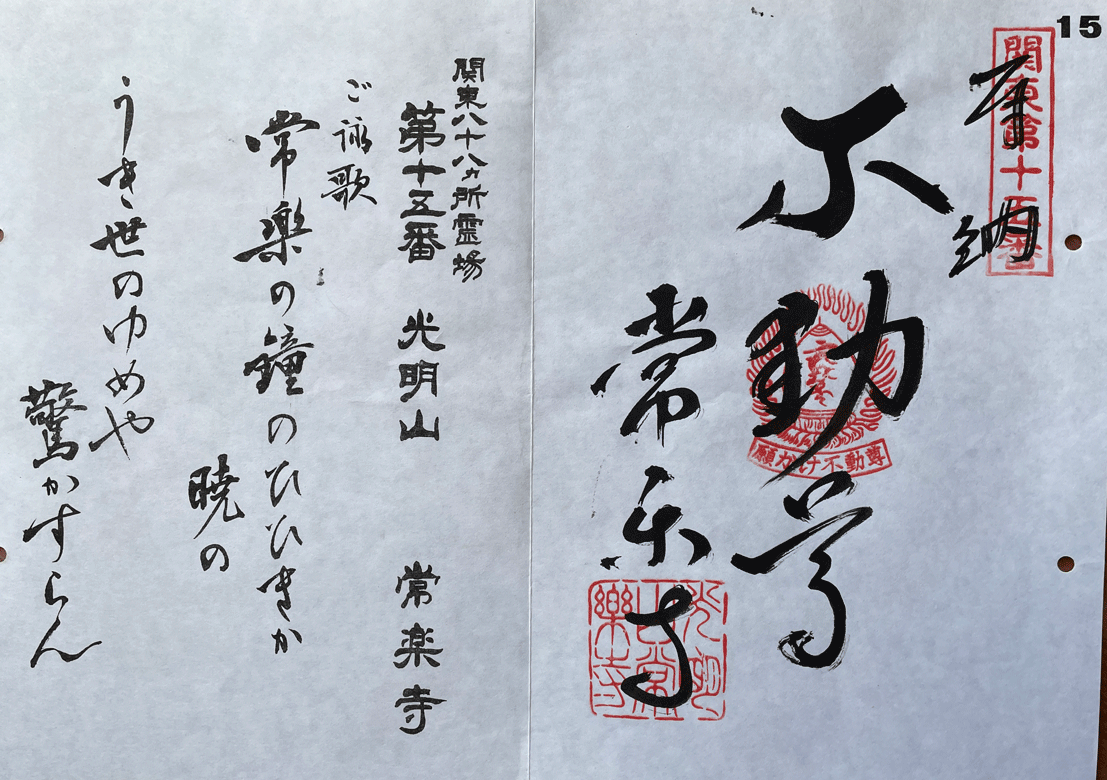 15
関東第十五番
奉納
不動尊
願かけ不動尊
常楽寺
光明山常樂寺
関東八十八ヵ所霊場
第十五番 光明山 常楽寺
ご詠歌
常楽の鐘のひひきか
暁の
うき世のゆめや
驚かすらん